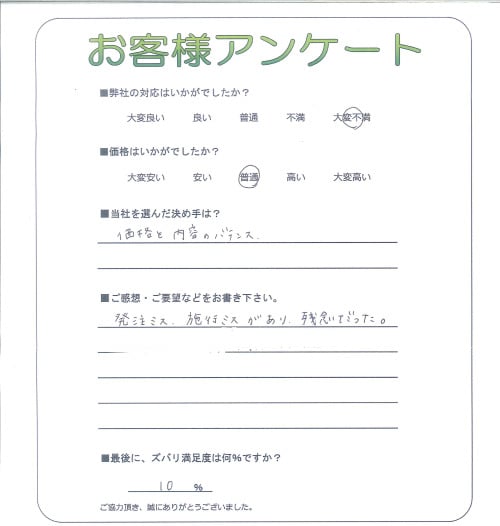 お客様アンケート
■弊社の対応はいかがでしたか？
大変良い 良い 普通 不満 大変不満
■価格はいかがでしたか？
大変安い 安い 普通 高い 大変高い
■当社を選んだ決め手は？
価格と内容のバランス.
■ご感想・ご要望などをお書き下さい。
発注ミス、施行ミスがあり、残念だった。
■最後に、ズバリ満足度は何%ですか？
10 %
ご協力頂き、誠にありがとうございました。